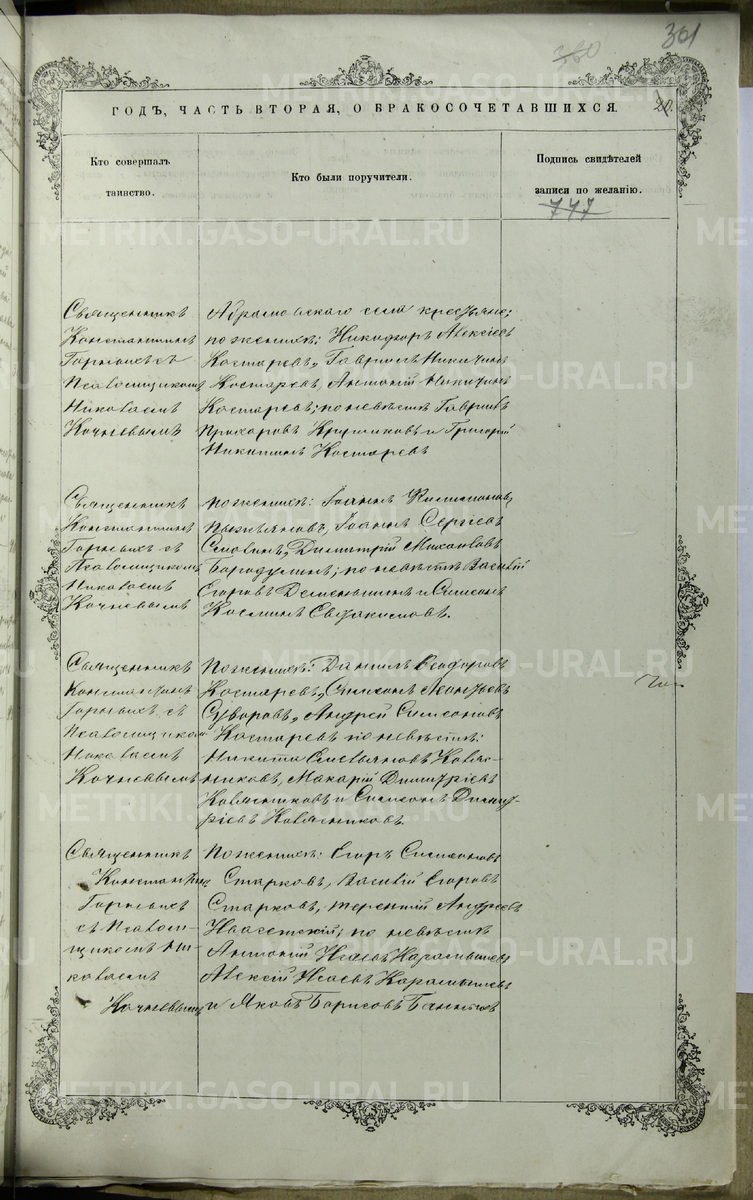 360
301
ГОДЪ, ЧАСТЬ ВТОРАЯ, О БРАКОСОЧЕТАВШИХСЯ.
Кто совершалъ
таинство.
Кто были поручители.
Подпись свидѣтелей
записи по желанію.
747
Священникъ
Константинъ
Горныхъ съ
Псаломщикомъ
Николаемъ
Кочневымъ
Абрамовскаго села крестьяне;
по женихѣ: Никифоръ Алексѣевъ
Костаревъ, Гавріилъ Никитинъ
Костаревъ, Антоній Никитинъ
Костаревъ; по невѣстѣ Гавріилъ
Прохоровъ и Григорій
Никитинъ Костаревъ
Священникъ
Константинъ
Горныхъ съ
Псаломщикомъ
Николаемъ
Кочневымъ
По женихѣ: Іоаннъ Филимоновъ
Іоаннъ Сергѣевъ
Димитрій Михаиловъ
Бородулинъ; по невѣстѣ Василій
Егоровъ Деменьшинъ и Симеонъ
Косминъ Евдакимовъ.
Священникъ
Константинъ
Горныхъ съ
Псаломщикомъ
Николаемъ
Кочневымъ
По женихѣ: Даніилъ Ѳеодоровъ
Костаревъ, Симеонъ Леонтьевъ
Суворовъ, Андрей Симеоновъ
Костаревъ по невѣстѣ:
Никита Емельяновъ Коляс-
никовъ, Макарій Димитріевъ
Колясниковъ и Симеонъ Димит-
ріевъ Колясниковъ.
Священникъ
Константинъ
Горныхъ
съ Псалом-
щикомъ Ни-
колаемъ
Кочневымъ
По женихѣ: Егоръ Симеоновъ
Старковъ, Василій Егоровъ
Старковъ, Терентій Андреевъ
по невѣстѣ
Антоній Исаевъ Карамышевъ
Алексій Исаевъ Карамышевъ
и Яковъ Борисовъ
METRIKI.GASO-URAL.RU